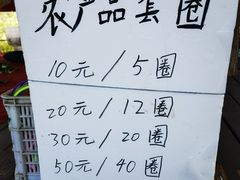 农产品套圈
10元/5圈
20元/12圈
30元/20圈
50元/40圈